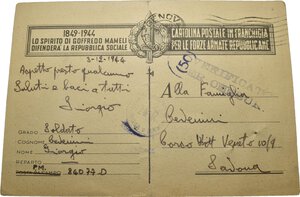 1849-1944
LO SPIRITO DI GOFFREDO MAMELI
DIFENDERÀ LA REPUBBLICA SOCIALE
CARTOLINA POSTALE IN FRANCHIGIA
PER LE FORZE ARMATE REPUBBLICANE
2-12-1944
Aspetto presto qualcuno
Saluti e baci a tutti
Giorgio
GRADO Soldato
COGNOME
NOME Giorgio
REPARTO
86077 D
Alla Famiglia
Corso Vitt Veneto 10/9
Savona